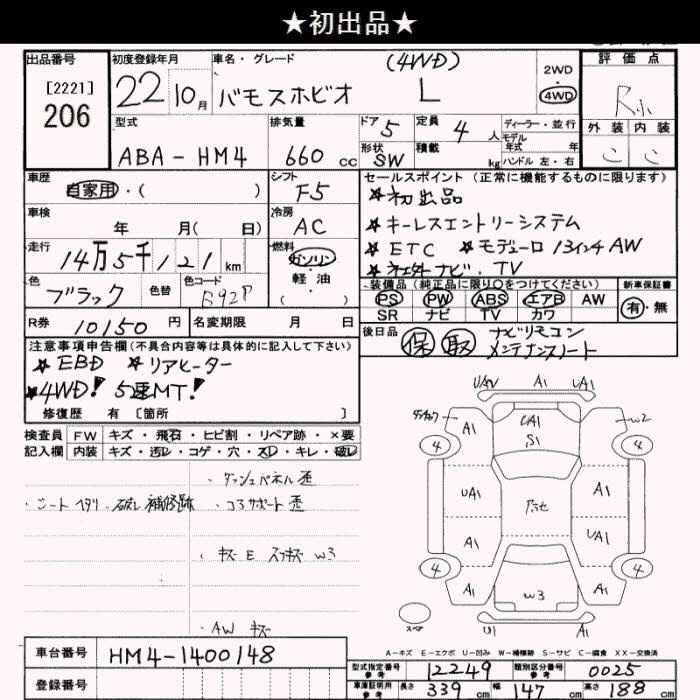 ★初出品★
出品番号
[2221]
206
初度登録年月
22 10月
車名・グレード
バモスホビオ L (4WD)
2WD
・
4WD
評価点
R小
外装 内装
C C
型式
ABA-HM4
排気量
660 cc
ドア 5
定員 4 人
形状 SW
積載 kg
ディーラー・並行
モデル
年式 年
ハンドル 左・右
車歴
自家用・( )
シフト
F5
車検
年 月( 日)
冷房
AC
走行
14万5千121 km
燃料
ガソリン
・
軽油
・
( )
色
ブラック
色替
色コード
B92P
R券 10150円
名変期限 月 日
セールスポイント (正常に機能するものに限ります)
★初出品
★キーレスエントリーシステム
★ETC ★モデューロ13インチAW
★社外ナビ・TV
装備品(純正品に限り○をつけてください)
PS PW ABS エアB AW
SR ナビ TV カワ
新車保証書
有・無
後日品
保 取 ナビリモコン
メンテナンスノート
注意事項申告欄(不具合内容等は具体的に記入して下さい)
★EBD ★リアヒーター
★4WD! 5速MT!
修復歴 有 [箇所 ]
検査員
記入欄
FW キズ・飛石・ヒビ割・リペア跡・×要
内装 キズ・汚レ・コゲ・穴・スレ・キレ・破レ
・ダッシュパネル歪
・シートヘタリ・破レ補修跡 ・コアサポート歪
・キズ E スリキズ W3
・AW キズ
UAV A1 UA1
A1
UA1
S1
W2
4
4
UA1
A1
A1
UA1
4
4
A1
A1
W3
スペア
U1
A1
A-キズ E-エクボ U-凹み W-補修跡 S-サビ C-腐食 XX-交換済
車台番号 HM4-1400148
登録番号
型式指定番号
参考
12249
類別区分番号
参考
0025
車庫証明用
参考
長さ 339 cm 幅 147 cm 高さ 188 cm